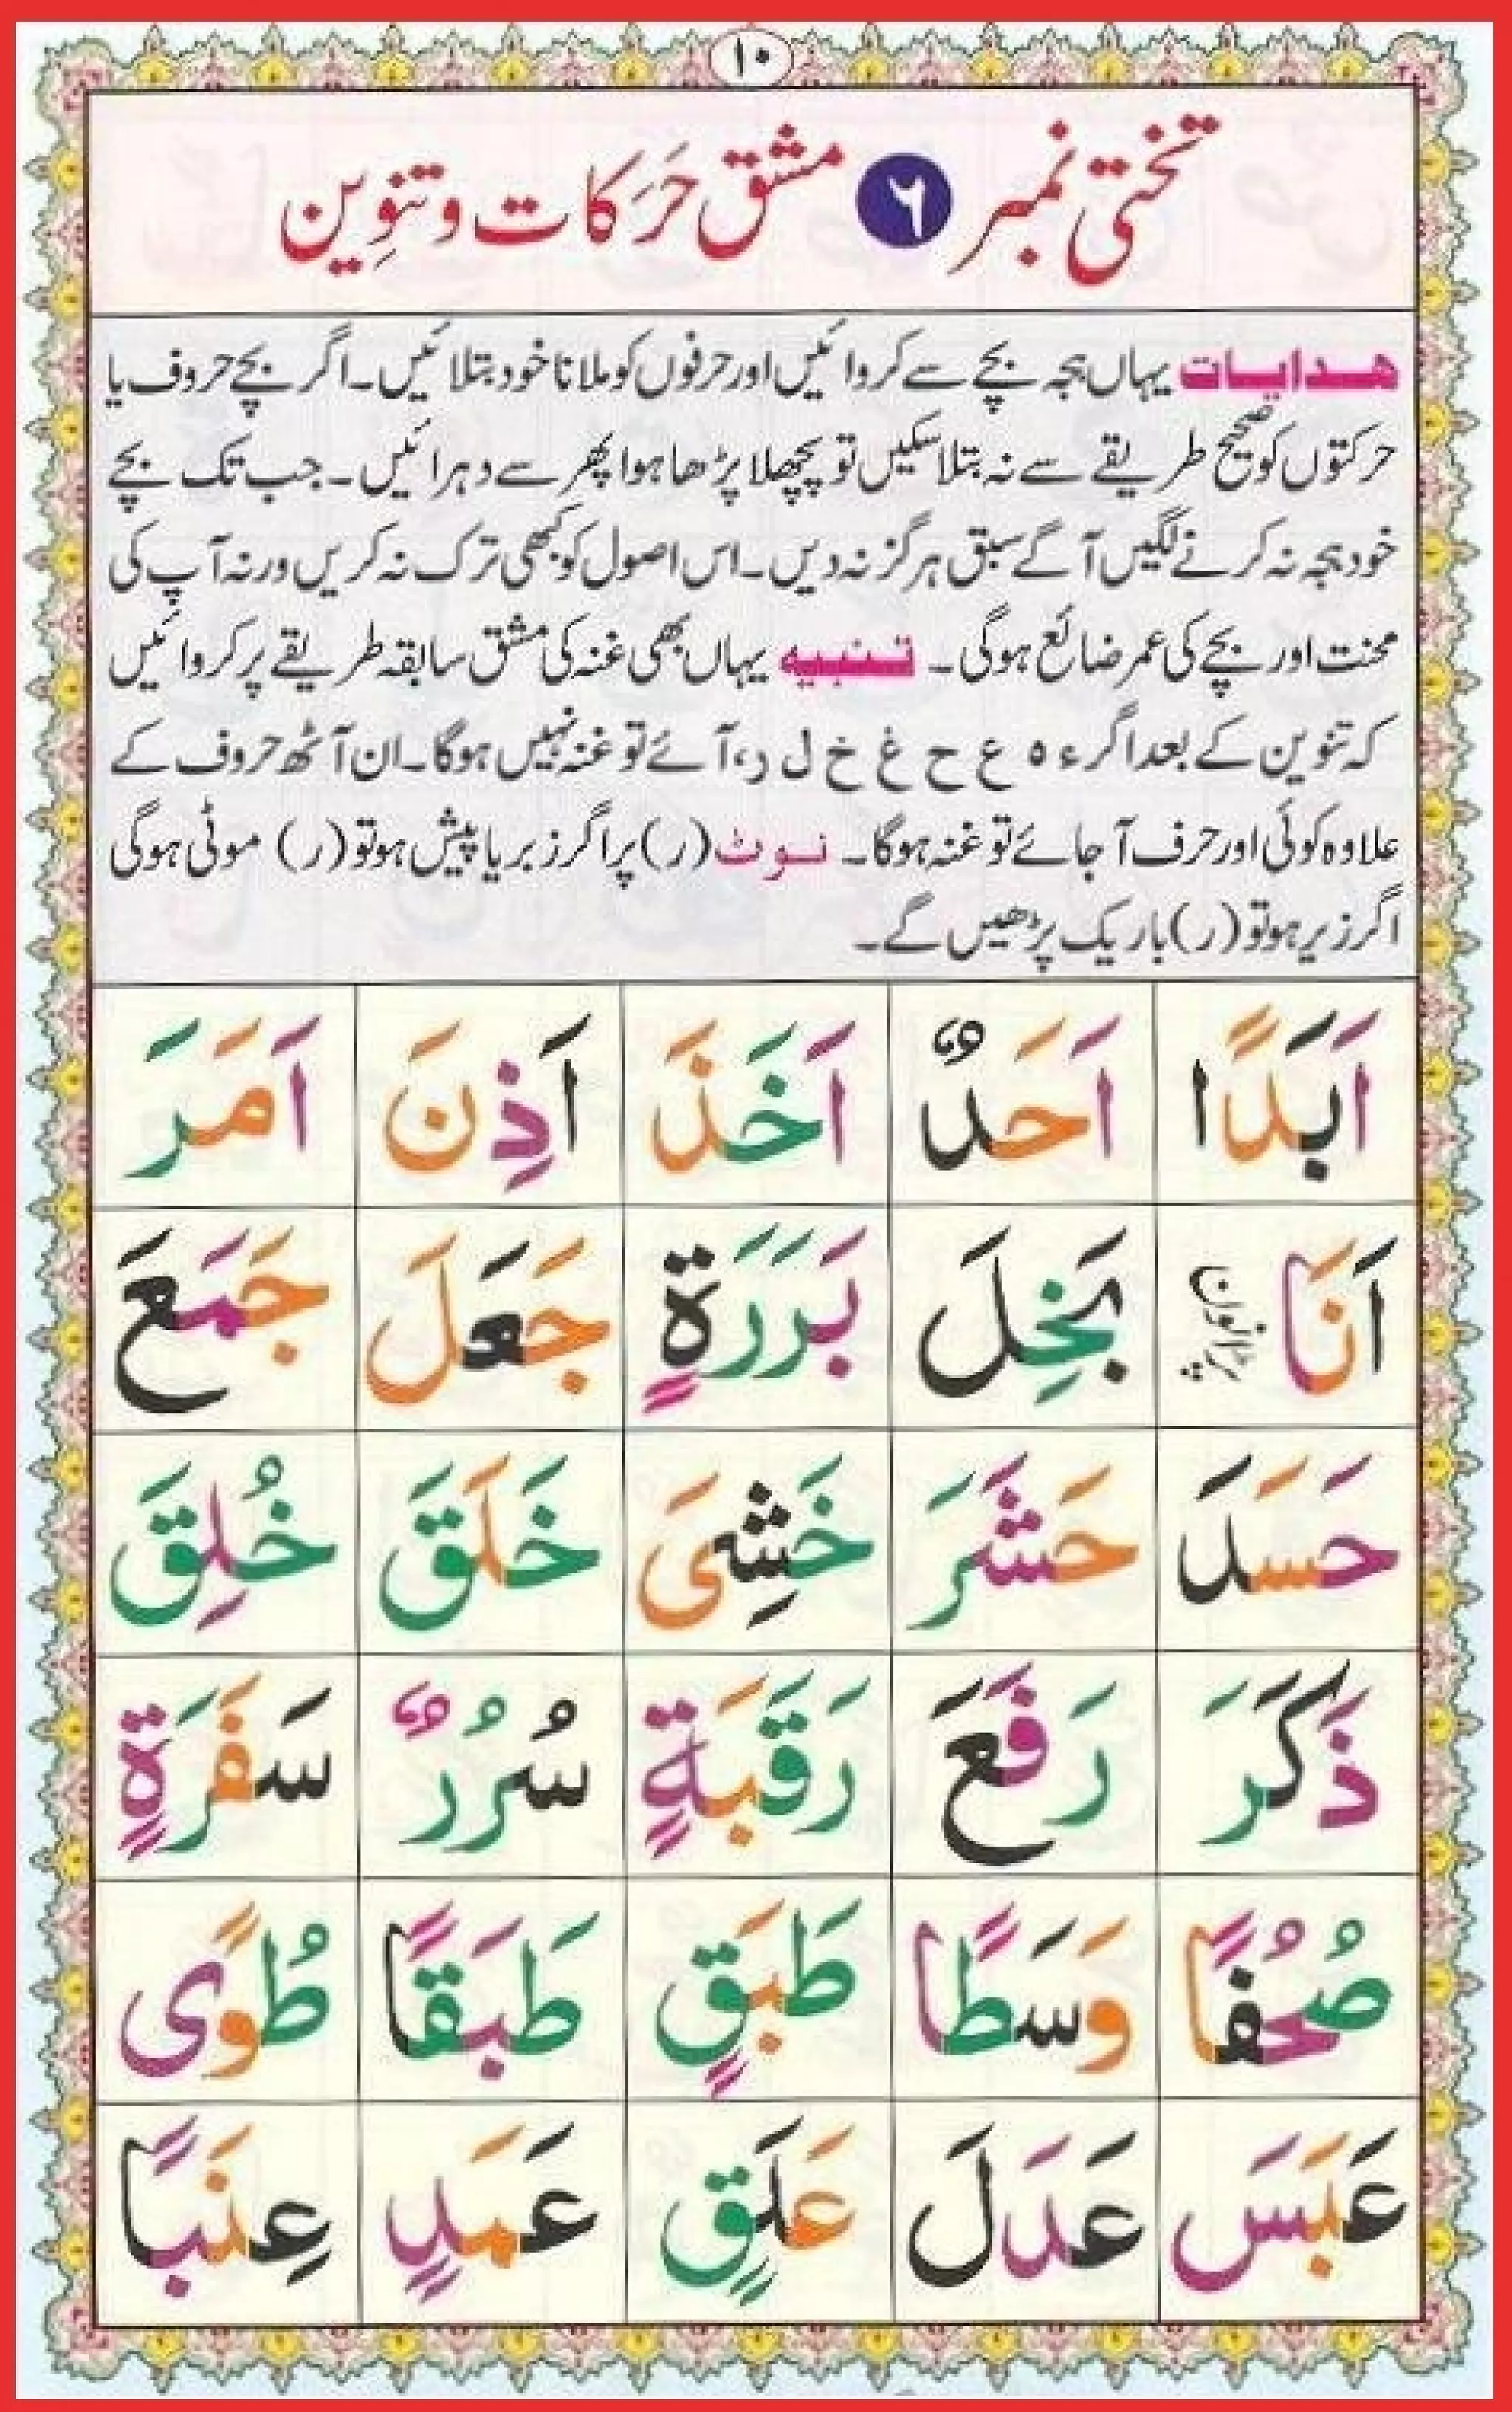 ۱۰
تختی نمبر ۶ مشق حَرَکات و تنوِین
ھدایات یہاں ہجہ بچے سے کروائیں اور حرفوں کو ملانا خود بتلائیں۔ اگر بچے حروف یا
حرکتوں کو صحیح طریقے سے نہ بتلاسکیں تو پچھلا پڑھا ہوا پھر سے دہرائیں۔ جب تک بچے
خود ہجہ نہ کرنے لگیں آگے سبق ہرگز نہ دیں۔ اس اصول کو کبھی ترک نہ کریں ورنہ آپ کی
محنت اور بچے کی عمر ضائع ہوگی۔ تنبیہ یہاں بھی غنہ کی مشق سابقہ طریقے پر کروائیں
کہ تنوین کے بعد اگر ء ہ ع ح غ خ ل ر، آئے تو غنہ نہیں ہوگا۔ ان آٹھ حروف کے
علاوہ کوئی اور حرف آ جائے تو غنہ ہوگا۔ نوٹ (ر) پر اگر زبر یا پیش ہو تو (ر) موٹی ہوگی
اگر زیر ہو تو (ر) باریک پڑھیں گے۔
اَبَدًا اَحَدٌ اَخَذَ اَذِنَ اَمَرَ
اَنَا بَخِلَ بَرَرَةٍ جَعَلَ جَمَعَ
حَسَدَ حَشَرَ خَشِیَ خَلَقَ خُلِقَ
ذَكَرَ رَفَعَ رَقَبَةٍ سُرُرٌ سَفَرَةٍ
صُحُفًا وَسَطًا طَبَقٍ طَبَقًا طُوًی
عَبَسَ عَدَلَ عَلَقٍ عَمَدٍ عِنَبًا